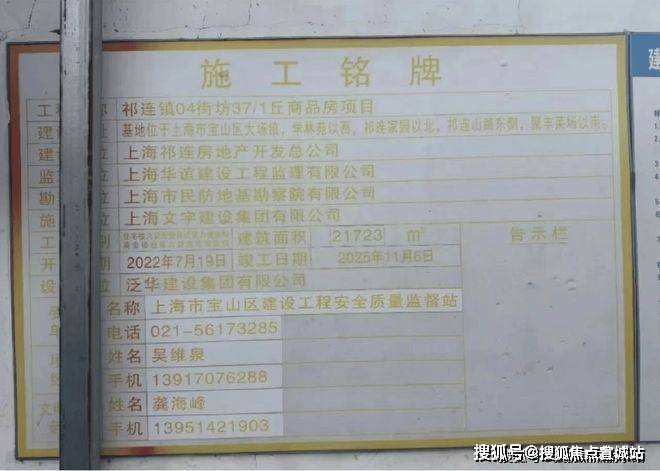 施工铭牌
工 称 祁连镇04街坊37/1丘商品房项目
建 址 基地位于上海市宝山区大场镇，学林苑以西，祁连家园以北，祁连山路东侧，聚丰菜场以南。
建 位 上海祁连房地产开发总公司
监 位 上海华谊建设工程监理有限公司
勘 位 上海市民防地基勘察院有限公司
施 位 上海文宇建设集团有限公司
工 别 建筑面积 21723 m² 告示栏
开 期 2022年7月19日 竣工日期 2025年11月6日
设 位 泛华建设集团有限公司
名称 上海市宝山区建设工程安全质量监督站
单 电话 021-56173285
项 姓名 吴维泉
经 手机 13917076288
文 姓名 龚海峰
手机 13951421903
建
搜狐号@搜狐焦点宣城站